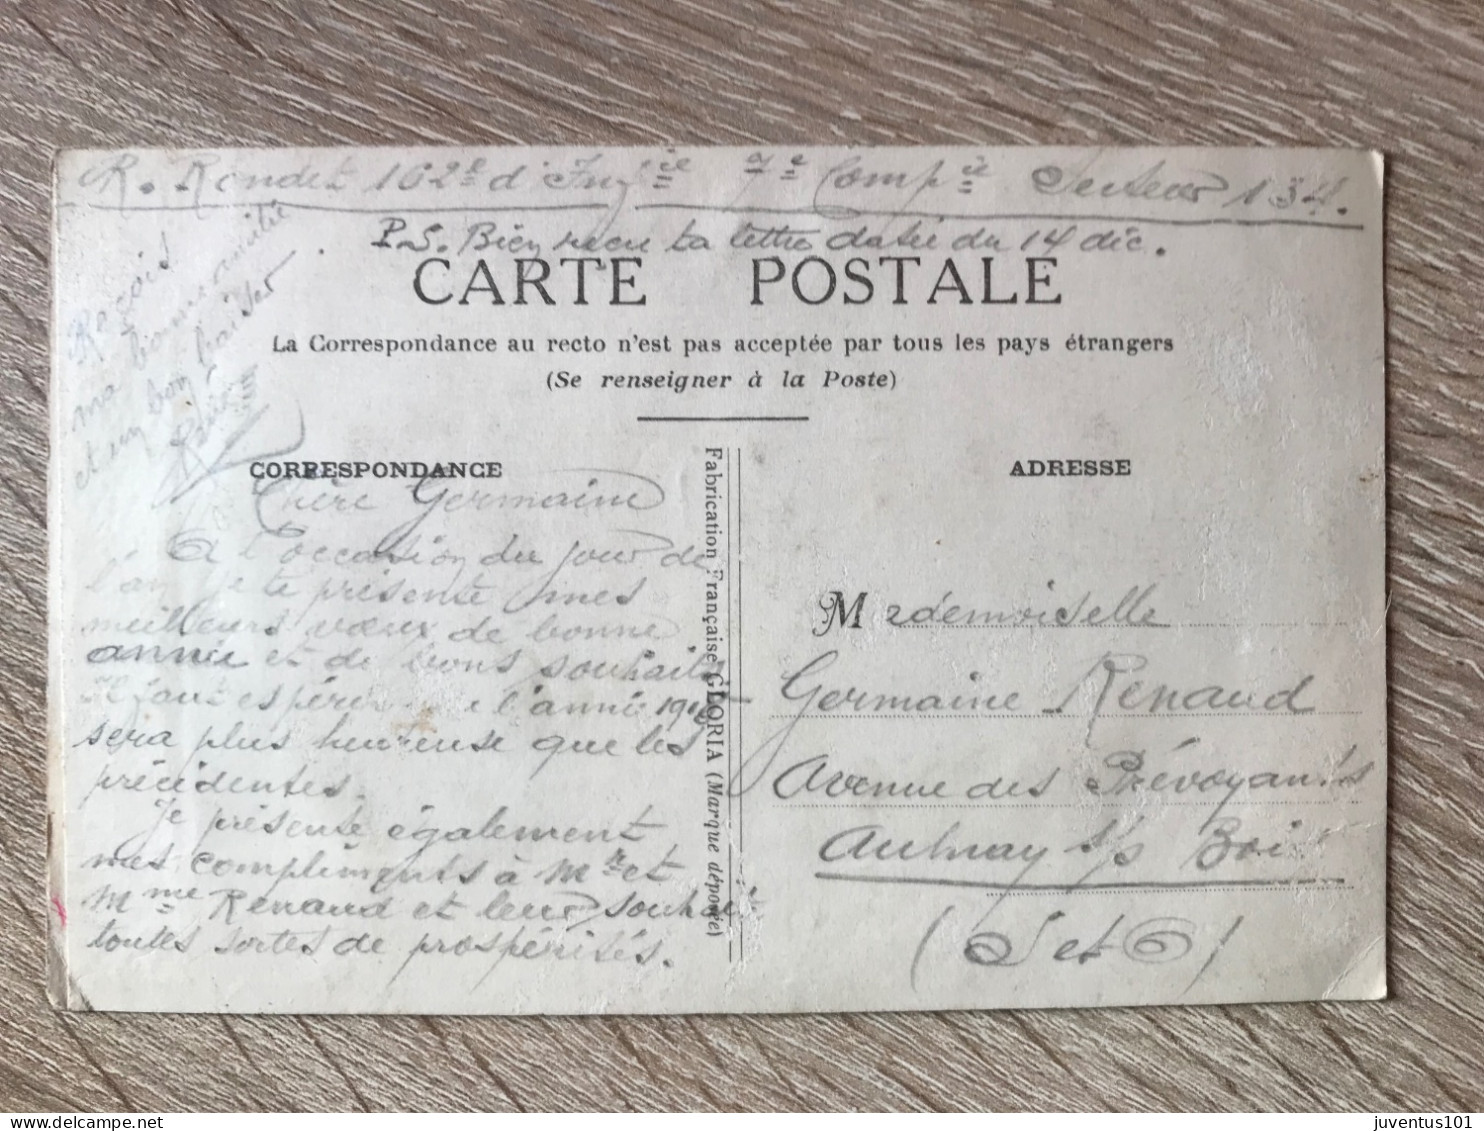 R. Rondet 102e d'Infie 7e Compie Secteur 134.
P.S. Bien recu ta lettre datée du 14 dec.
CARTE POSTALE
La Correspondance au recto n'est pas acceptée par tous les pays étrangers
(Se renseigner à la Poste)
Reçois
ma bonne amitié
et un bon baiser
CORRESPONDANCE
Chère Germaine
A l'occasion du jour de
l'an je te présente mes
meilleurs vœux de bonne
année et de bons souhaits
Il faut espérer l'année
sera plus heureuse que les
précédentes.
Je présente également
mes compliments à Mr et
Mme Renaud et leur souhait
toutes sortes de prospérités.
Fabrication Française GLORIA (Marque déposée)
ADRESSE
Mademoiselle
Germaine Renaud
Avenue des Prévoyants
Aulnay s/s Bois
(Set O)
juventus101